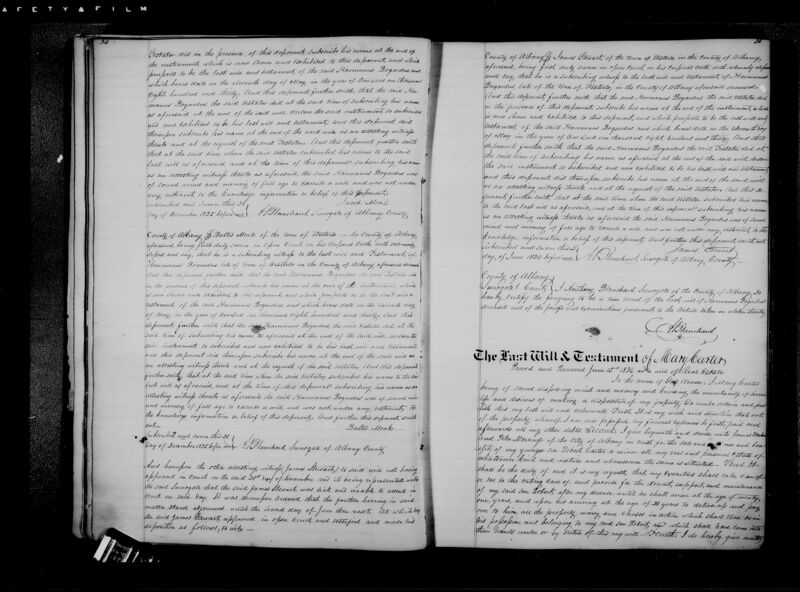 AFETY FILM
Testator did in the presence of this deponent subscribe his name at the end of
the instrument which is now shown and exhibited to this deponent, and which
purports to be the last will and testament of the said Harmanus Bogardus and
which bears date on the eleventh day of May in the year of Our Lord one thousand
Eight hundred and thirty. And this deponent further saith, that the said Har-
manus Bogardus the said testator did at the said time of subscribing his name
as aforesaid at the end of the said will, declare the said instrument so subscribed
and now exhibited to be his last will and testament; And this deponent did
thereupon subscribe his name at the end of the said will as an attesting witness
thereto and at the request of the said Testator. And this deponent further saith
that at the said time when the said testator subscribed his name to the said
last will as aforesaid, and at the time of this deponent subscribing his name
as an attesting witness thereto as aforesaid, the said Harmanus Bogardus was
of sound mind and memory of full age to execute a will and was not under
any restraint to the knowledge information or belief of this deponent.
Subscribed and Sworn this 21
day of December 1835 before me A. Blanchard, Surrogate of Albany County
County of Albany ss Baltis Mook of the town of in the County of Albany,
aforesaid, being duly sworn in open Court on his Corporal Oath, doth solemnly
depose and say, that he is a subscribing witness to the last will and Testament, of
Harmanus Bogardus late of in the County of Albany aforesaid deceased
And this deponent further saith that the said Harmanus Bogardus the said testator did
in the presence of this deponent subscribe his name at the end of the instrument, which
is now shown and exhibited to this deponent and which purports to be the last will &
testament of the said Harmanus Bogardus and which bears date on the eleventh day
of May, in the year of our Lord one thousand Eight hundred and thirty. And this
deponent further saith that the said Harmanus Bogardus the said testator did at the
said time of subscribing his name as aforesaid at the end of the said will, declare the
said instrument so subscribed and now exhibited to be his last will and testament
and this deponent did thereupon subscribe his name at the end of the said will as
an attesting witness thereto and at the request of the said testator. And this deponent
further saith, that at the said time when the said testator subscribed his name to the said
last will as aforesaid, and at the time of this deponent subscribing his name as an
attesting witness thereto as aforesaid the said Harmanus Bogardus was of sound mind
and memory of full age to execute a will, and was not under any restraint, to
the knowledge information or belief of this deponent. And further this deponent saith
not.
Baltis Mook
Subscribed and sworn this 21
day of December 1835 before me A. Blanchard Surrogate of Albany County
And whereupon the other attesting witness James Stewart to said will not having
appeared in Court on the said day of December and it being represented unto
the said Surrogate that the said James Stewart was sick and unable to attend in
Court on said day. It was thereupon ordered that the further hearing in said
matter stand adjourned until the second day of June then next. At which day
the said James Stewart appeared in open Court and testified and made his
deposition as follows, to wit
County of Albany ss James Stewart of the town of in the County of Albany,
aforesaid, being duly sworn in open Court, on his Corporal Oath doth solemnly depose
and say, that he is a subscribing witness to the last will and testament of Harmanus
Bogardus late of the Town of in the County of Albany aforesaid deceased
And this deponent further saith, that the said Harmanus Bogardus the said testator did
in the presence of this deponent subscribe his name at the end of the instrument, which
is now shown and exhibited to this deponent, and which purports to be the last will and
testament of the said Harmanus Bogardus and which bears date on the eleventh day
of May in the year of Our Lord one thousand Eight hundred and thirty. And this
deponent further saith that the said Harmanus Bogardus the said testator did at
the said time of subscribing his name as aforesaid at the end of the said will declare
the said instrument so subscribed and now exhibited to be his last will and testament
and this deponent did thereupon subscribe his name at the end of the said will
as an attesting witness thereto and at the request of the said testator. And this de-
ponent further saith, that at the said time when the said testator subscribed his name
to the said last will as aforesaid, and at the time of this deponent subscribing his name
as an attesting witness thereto as aforesaid the said Harmanus Bogardus was of sound
mind and memory of full age to execute a will and was not under any restraint to the
knowledge information or belief of this deponent. And further this deponent saith not.
Subscribed and sworn this James Stewart
day of June 1836 before me A. Blanchard, Surrogate of Albany County
County of Albany
Surrogate's County I Anthony Blanchard Surrogate of the County of Albany, do
hereby certify the foregoing to be a true record of the last will of Harmanus Bogardus
deceased and of the proofs and examinations pursuant to the Statute taken in relation thereto.
A Blanchard
The Last Will & Testament of Mary Carter
Proved and Recorded June 15th 1836 as a will of Real Estate
In the name of God Amen. I Mary Carter
being of sound disposing mind and memory and knowing the uncertainty of human
life and desirous of making a disposition of my property Do make ordain and pub-
lish this my last will and testament. First. It is my wish and direction that out
of the property whereof I am now possessed, my funeral expenses be first paid and
afterwards all my other debts. Second. I give bequeath and devise unto James
and of the City of Albany in trust for the sole use and ben-
efit of my younger son Robert Carter a minor all my real and personal Estate of
whatsoever kind and nature and wheresoever the same is situated. Third. It
shall be the duty of and it is my request, that my Executors shall take care of
or see to the taking care of and provide for the decent support and maintenance
of my said son Robert after my decease until he shall arrive at the age of twenty
one years, and upon his arriving at the age of 21 years to deliver up and pay
over to him all the property, money and choses in action which shall then be in
his possession and belonging to my said son Robert, and which shall have come into
their hands under or by virtue of this my will. Fourth. I do hereby give unto